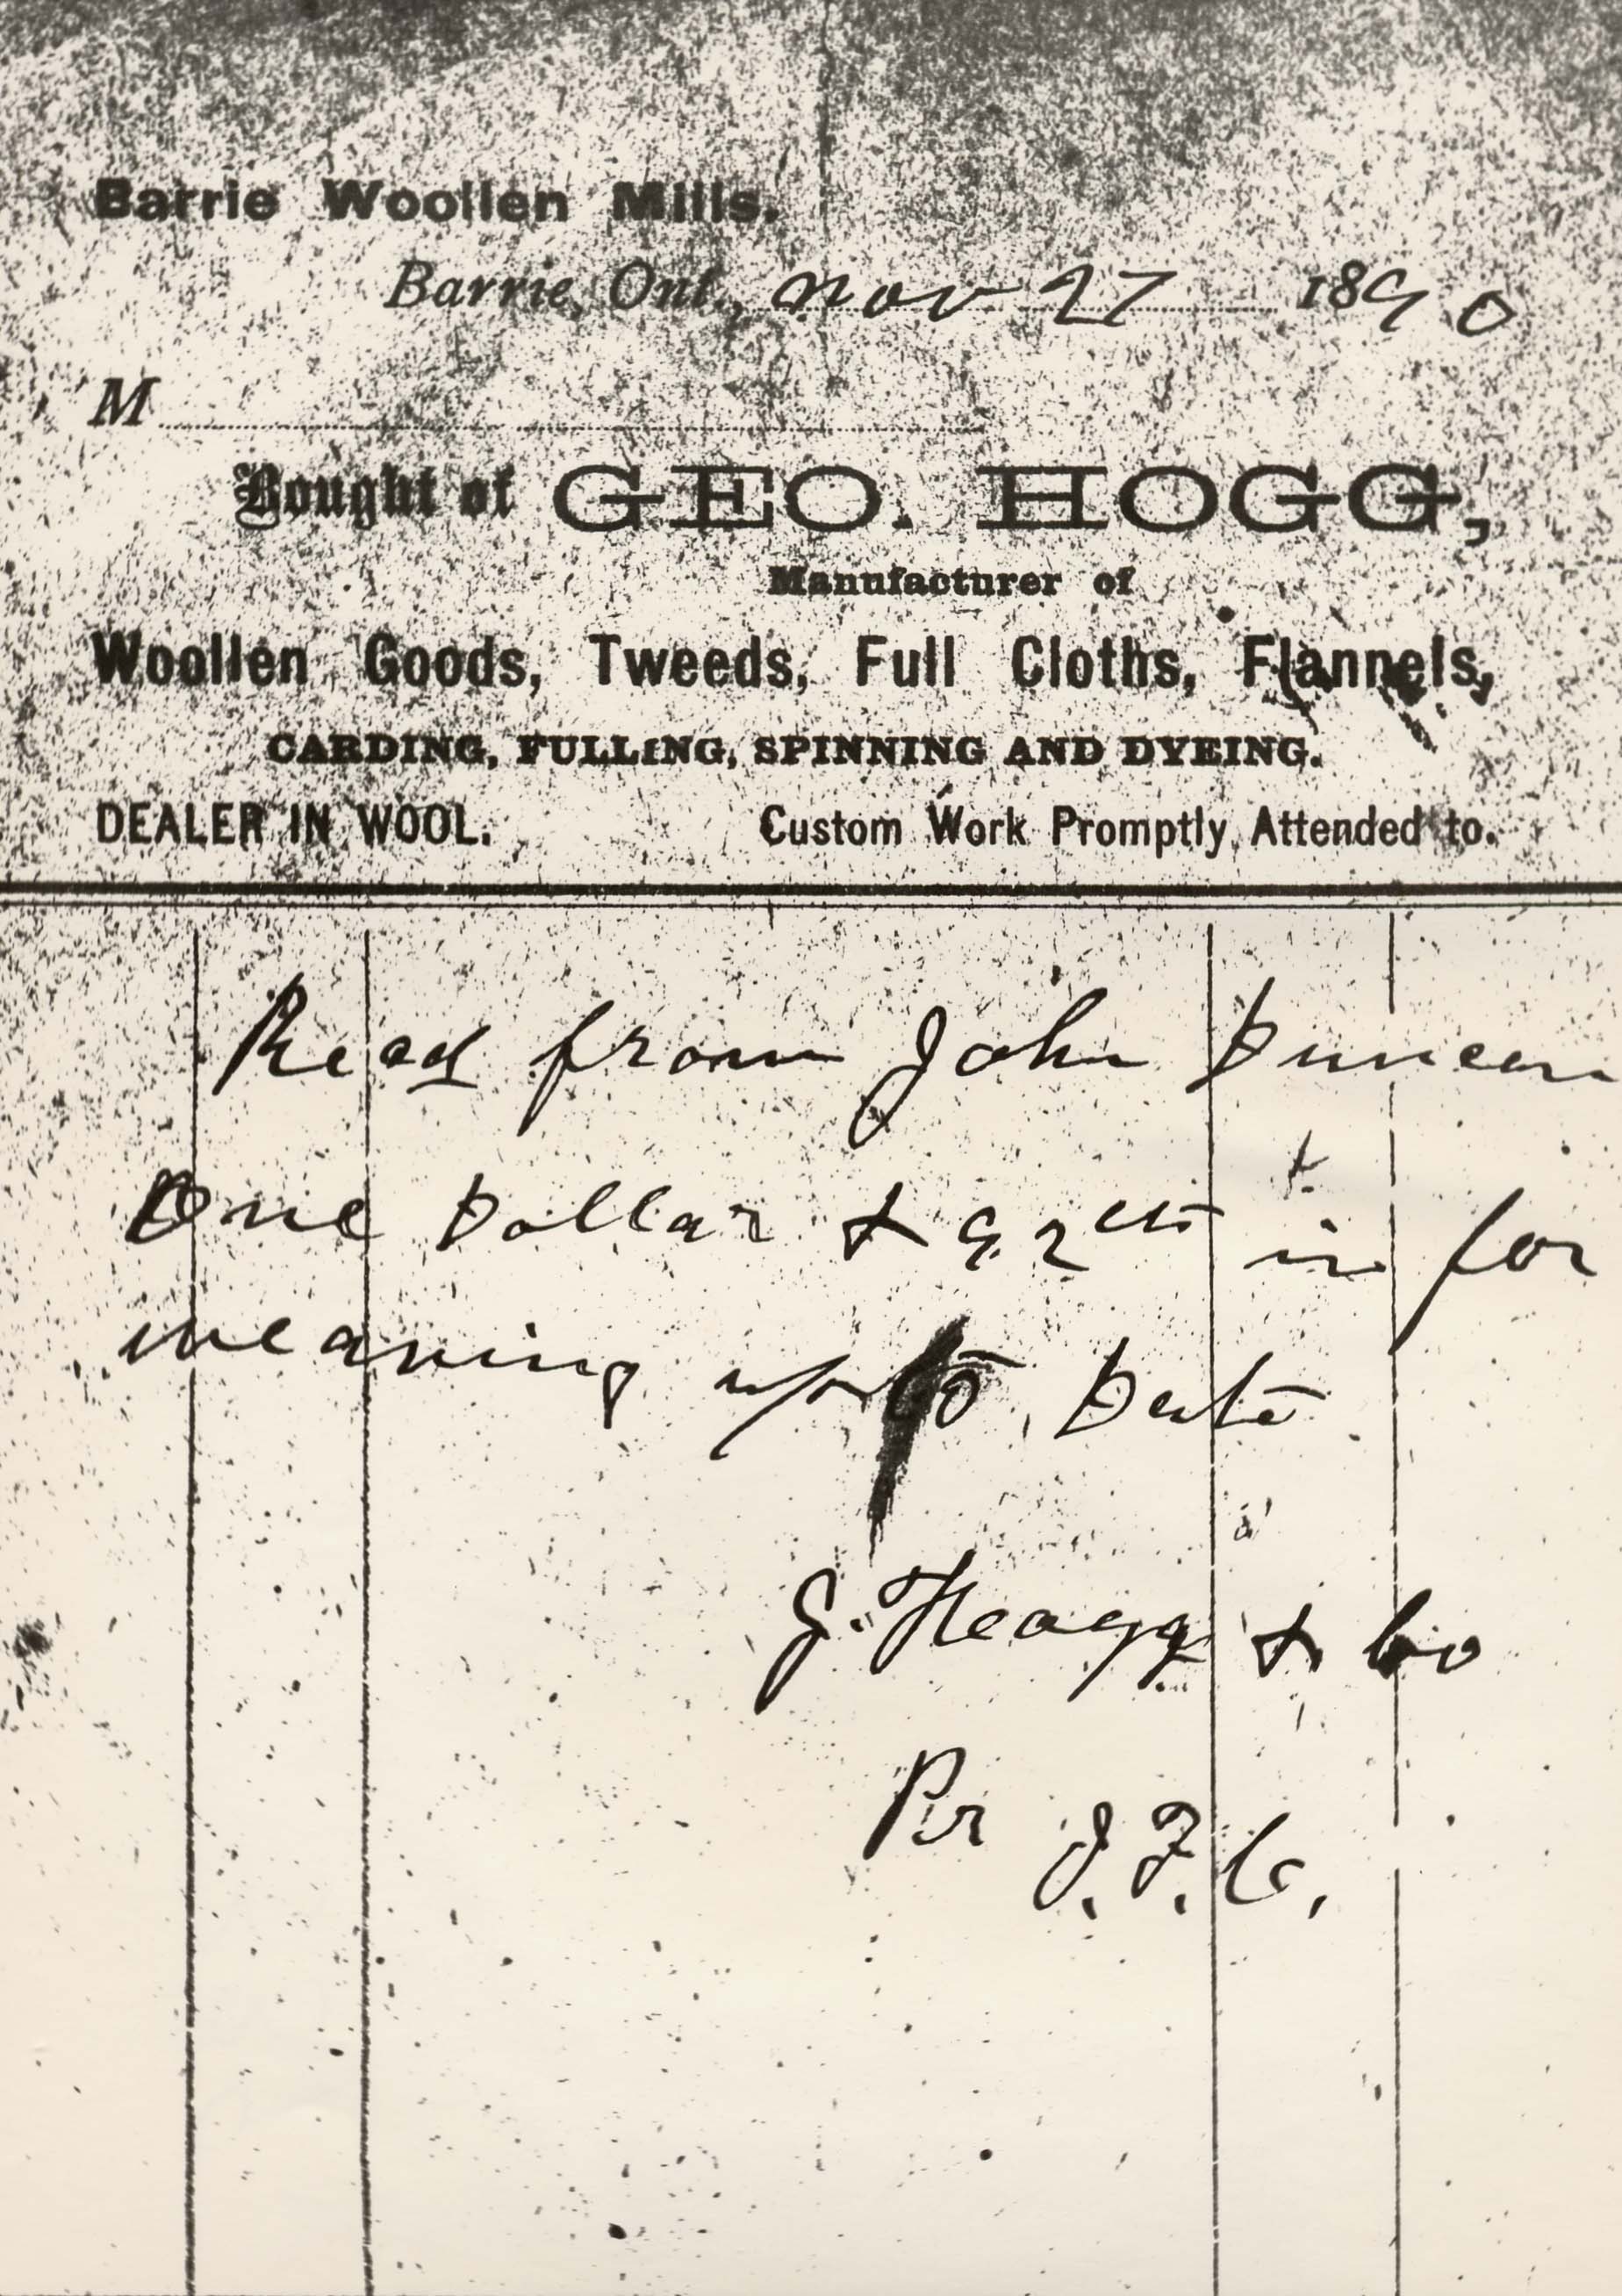 Barrie Woollen Mills.
Barrie, Ont., Nov 27 1890
M
Bought of GEO. HOGG,
Manufacturer of
Woollen Goods, Tweeds, Full Cloths, Flannels,
CARDING, FULLING, SPINNING AND DYEING.
DEALER IN WOOL. Custom Work Promptly Attended to.
Recd from John Duncan
One Dollar & 92 cts in for
weaving up to Date
G. Hogg & Co
Per J. F. C.